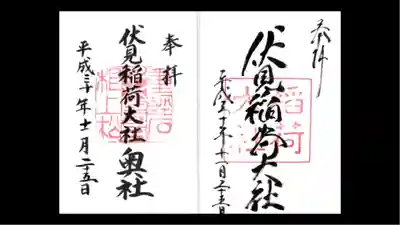 奉拝
伏見稲荷大社
平成三十年十一月二十五日
奉拝
伏見稲荷大社奥社
平成三十年十一月二十五日
稲荷